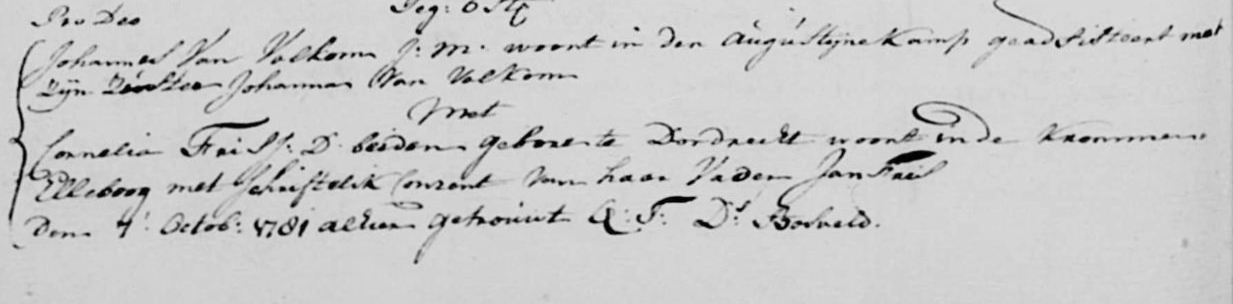 Pro Deo
Johannes Van Volkom J: M. woont in den Augustijne Kamp geadsisteert met
zijn Zuster Johanna Van Volkom
Met
Cornelia Fris J: D. beiden gebore te Dordrecht woont in de Kromme
Elleboog met schriftelik Consent van haar Vader Jan Fris
Den 7 Octob: 1781 alhier getrouwt Ds Bosveld.